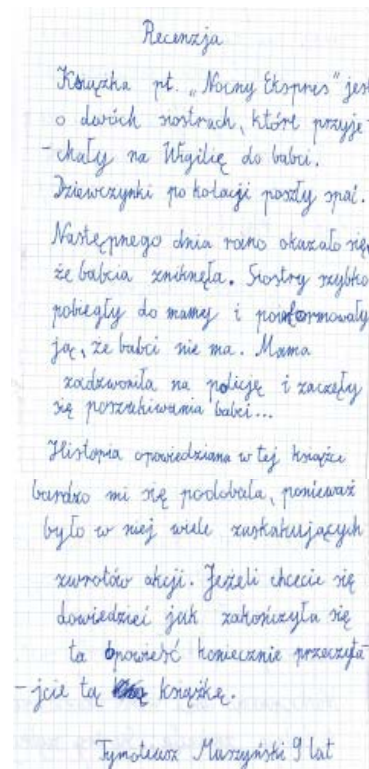 Recenzja
Książka pt. „Nocny Ekspres” jest
o dwóch siostrach, które przyje-
-chały na Wigilię do babci.
Dziewczynki po kolacji poszły spać.
Następnego dnia rano okazało się,
że babcia zniknęła. Siostry szybko
pobiegły do mamy i poinformowały
ją, że babci nie ma. Mama
zadzwoniła na policję i zaczęły
się poszukiwania babci...
Historia opowiedziana w tej książce
bardzo mi się podobała, ponieważ
było w niej wiele zaskakujących
zwrotów akcji. Jeżeli chcecie się
dowiedzieć jak zakończyła się
ta opowieść koniecznie przeczyta-
-jcie tą książkę.
Tymoteusz Muszyński 9 lat